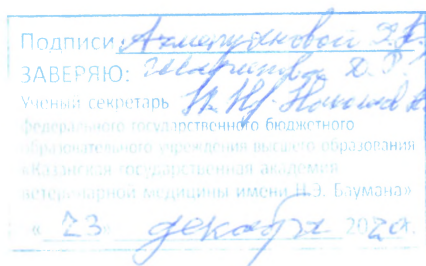 Подписи
ЗАВЕРЯЮ: Д. Р.
Ученый секретарь
федерального государственного бюджетного
образовательного учреждения высшего образования
«Казанская государственная академия
ветеринарной медицины имени Н.Э. Баумана»
« 23 » декабря 2020г.